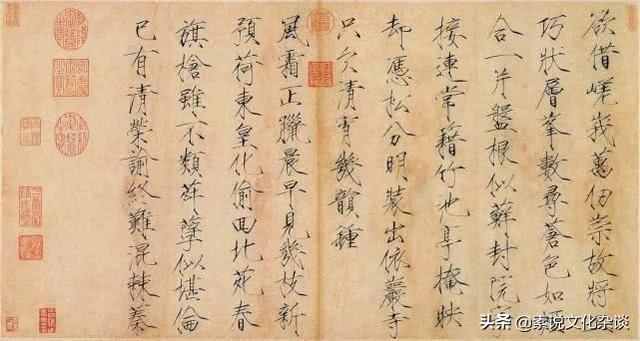 欲借嵯峨萬仞崇故將
巧狀層峯數尋蒼色如煙
合一片盤根似蘚封院宇
接連常藉竹池亭掩映
却憑松分明裝出依巖寺
只欠清宵幾韻鍾
風霜正臘晨早見幾枝新
預荷東皇化偷回北苑春
旗槍雖不類荈蘖似堪倫
已有清榮諭終難混棘榛
头条 @素说文化杂谈